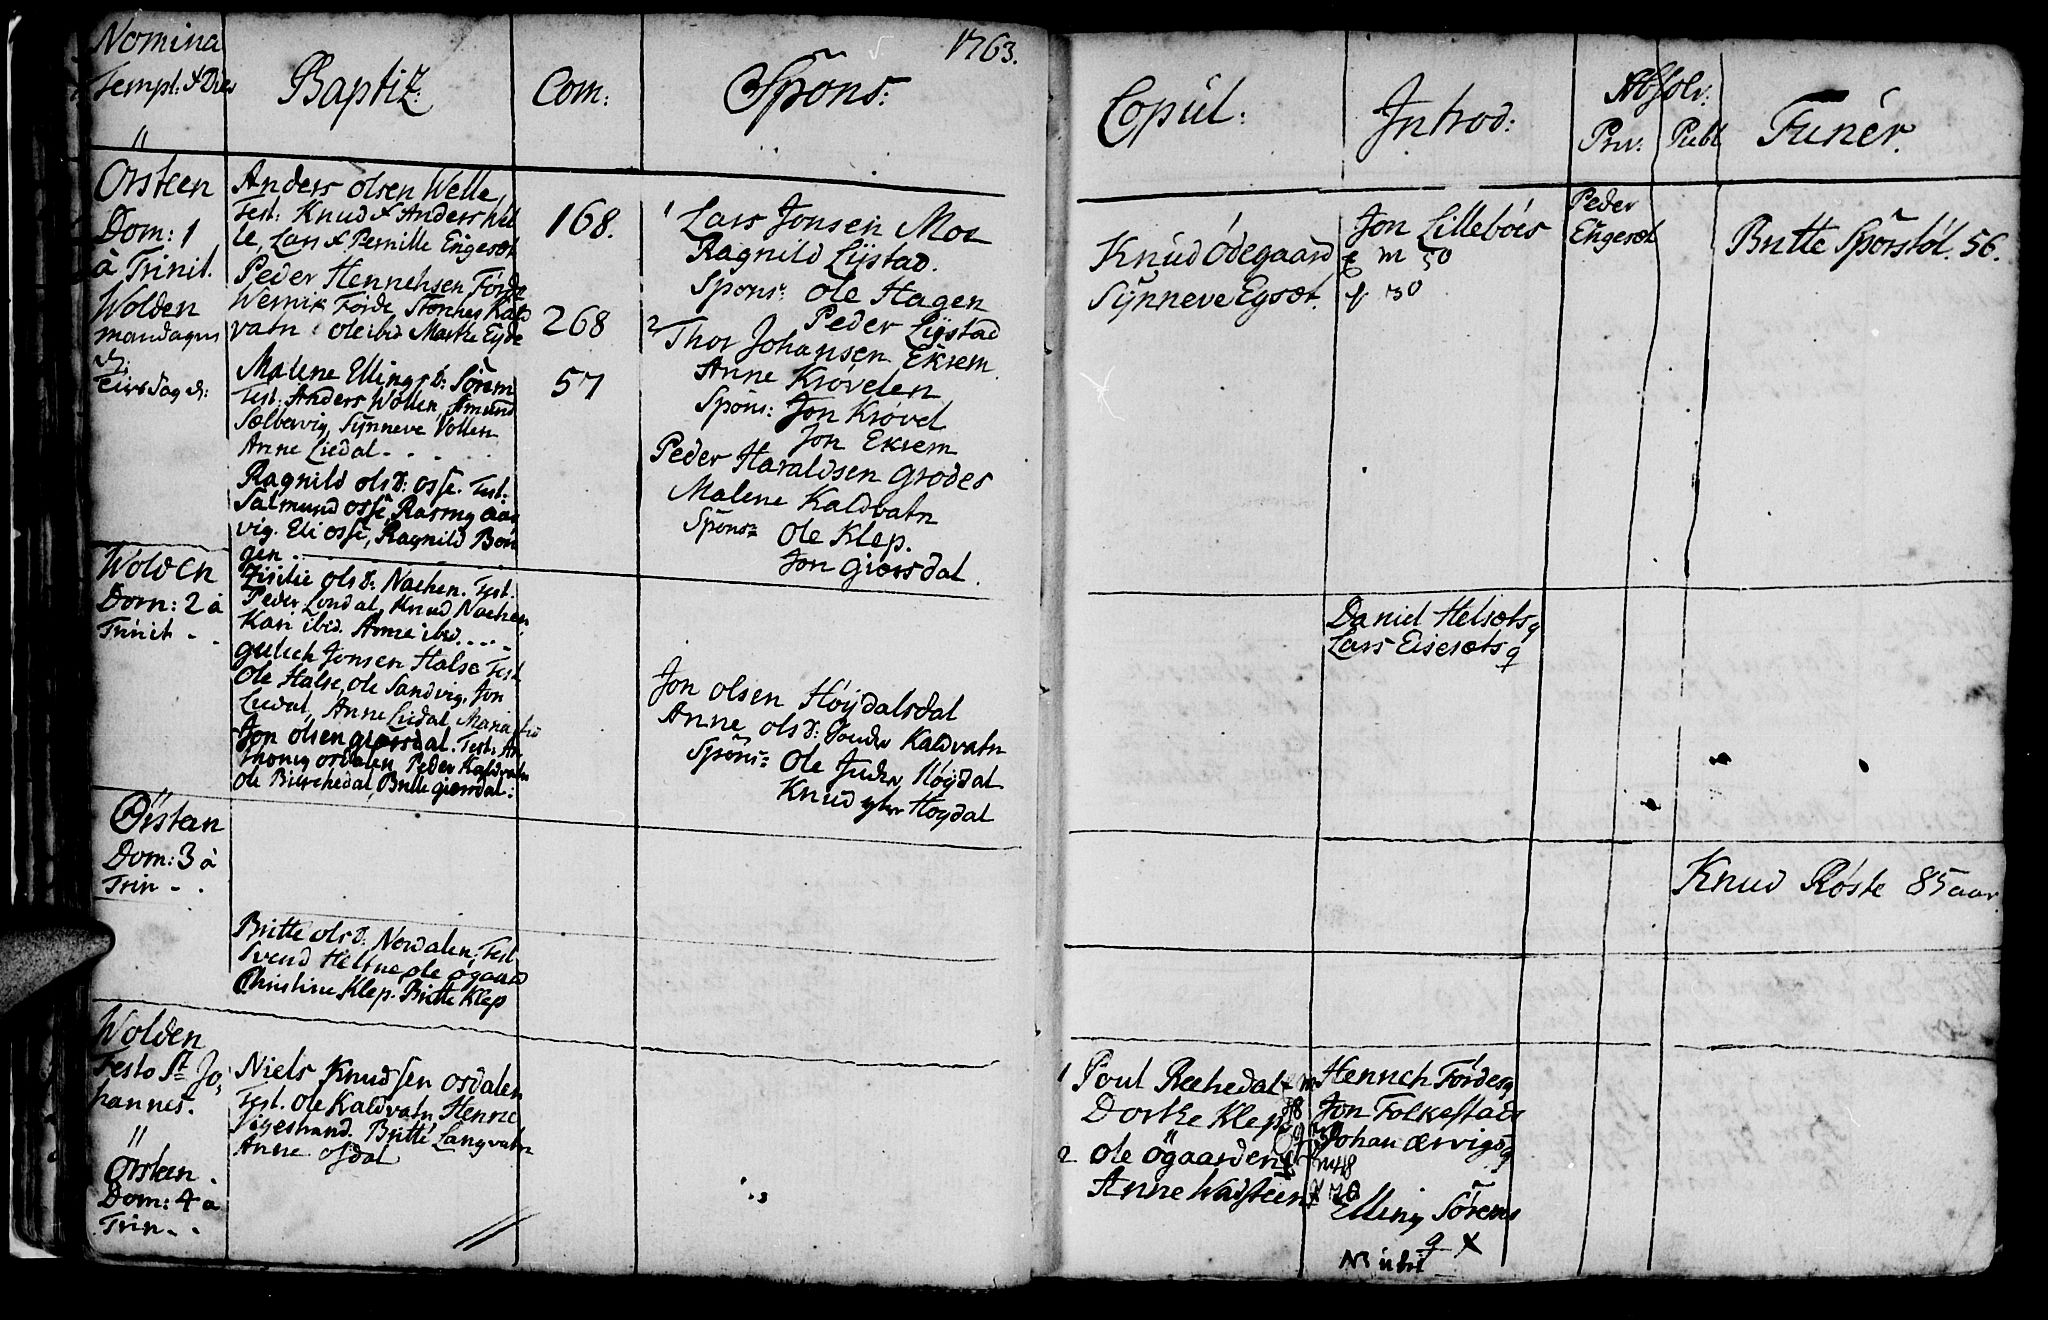 1763.
Nomina
Templ: & Dies
Baptiz:
Com:
Spons:
Copul:
Introd:
Absolv:
Priv. Publ
Funer.
Örsteen
Dom: 1
à Trinit.
Wolden
mandagen
&
tirsdag d:
Anders olsen Welle,
Test: Knud & Anders Wel
le, Lars & Pernille Engeset
Peder Hennchsen Förde
Förde
vatn ole ibid Marthe Eyde
Malene Ellings D: Sörem
Test: Anders Wollen, Amund
Sælbervig, Synneve Vollen
Anne Liedal - . . .
Ragnild ols D: osse. Test:
Salmund osse, Rasmg Aar
vig. Eli osse, Ragnild Bon
gen . -
168.
268
57
1 Lars Jonsen Moe
Ragnild Lystad.
Spons: ole Hagen
Peder Lystad
2 Thor Johansen Ekrem
Anne Krövelen
Spons: Jon Krövel
Jon Ekrem
Peder Haraldsen Grodes
Malene Kaldvatn
Spons: ole Klep.
Jon giersdal.
Knud Ödegaard
Synneve Egset
Jon Lilleböes
m 50
30
Peder
Engeset
Britte Sporstöl. 56.
Wolden
Dom: 2 à
Trinit - .
ols D: Naehen. Test.
Peder Londal, Knud Naehen,
Kari ibid. Anne ibid. . . .
gulich Jonsen Halse Test
Ole Halse, ole Sandvig, Jon
Liedal, Anne Liedal, Maria
Jon olsen giersdal. Test: An
thonig osdalen, Peder Kaldvatn
ole Bierchedal, Britte giersdal:
Jon olsen Höydalsdal
Anne ols D: Kaldvatn
Spons: Ole Höydal
Knud yter Höydal
Daniel Helsets q
Lars Eisesets q
Örsten
Dom: 3 à
Trin - .
Knud Röste 85 aar.
Britte ols D: Nordalen, Test
Svend Heltne, ole ögaard
Christine Klep. Britte Klep
Wolden
Festo St Jo,
hannes.
Niels Knudsen osdalen
Test. Ole Kaldvatn Henne
Vigestrand. Britte Langvatn
Anne osdal
1 Poul Reehedal
Dorthe Klep
2 Ole ögaarden m 48
Anne Wadsteen
Hennch Fördes q
Jon Folkestads
Johan ærvigs q
Elling Sörems
q x
NB ubi
Örsteen.
Dom: 4 à
Trin - .